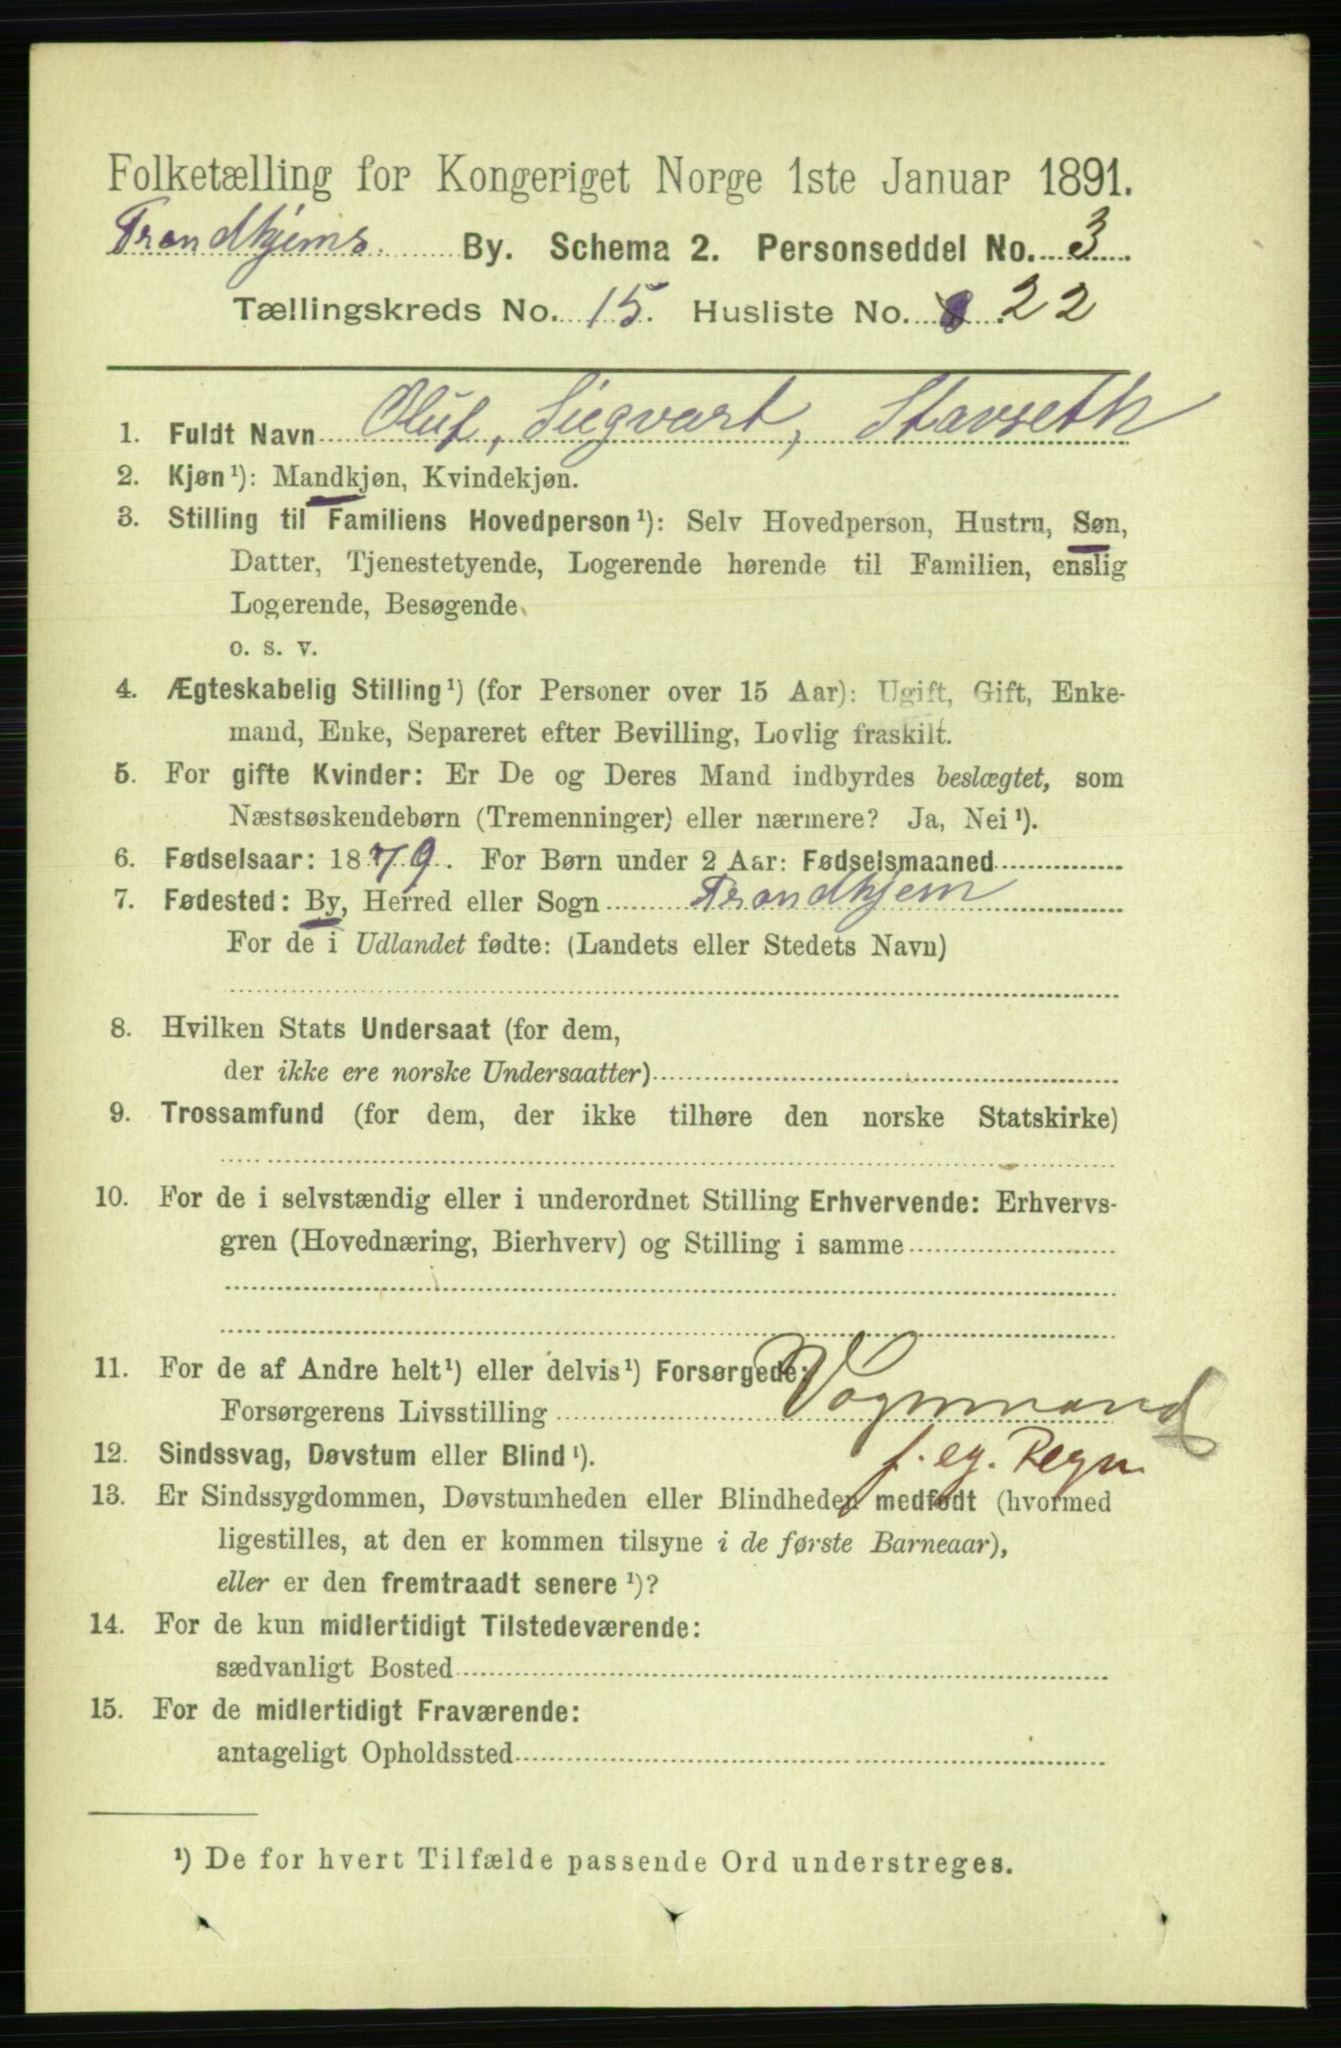 Folketælling for Kongeriget Norge 1ste Januar 1891.
Trondhjems By. Schema 2. Personseddel No. 3
Tællingskreds No. 15. Husliste No. 22
1. Fuldt Navn Oluf, Siegvart, Stavseth
2. Kjøn¹): Mandkjøn, Kvindekjøn.
3. Stilling til Familiens Hovedperson¹): Selv Hovedperson, Hustru, Søn,
Datter, Tjenestetyende, Logerende hørende til Familien, enslig
Logerende, Besøgende
o. s. v.
4. Ægteskabelig Stilling¹) (for Personer over 15 Aar): Ugift, Gift, Enke-
mand, Enke, Separeret efter Bevilling, Lovlig fraskilt.
5. For gifte Kvinder: Er De og Deres Mand indbyrdes beslægtet, som
Næstsøskendebørn (Tremenninger) eller nærmere? Ja, Nei¹).
6. Fødselsaar: 1879. For Børn under 2 Aar: Fødselsmaaned
7. Fødested: By, Herred eller Sogn Trondhjem
For de i Udlandet fødte: (Landets eller Stedets Navn)
8. Hvilken Stats Undersaat (for dem,
der ikke ere norske Undersaatter)
9. Trossamfund (for dem, der ikke tilhøre den norske Statskirke)
10. For de i selvstændig eller i underordnet Stilling Erhvervende: Erhvervs-
gren (Hovednæring, Bierhverv) og Stilling i samme
11. For de af Andre helt¹) eller delvis¹) Forsørgede:
Forsørgerens Livsstilling Vognmand
12. Sindssvag, Døvstum eller Blind¹). f. eg. Regn.
13. Er Sindssygdommen, Døvstumheden eller Blindheden medfødt (hvormed
ligestilles, at den er kommen tilsyne i de første Barneaar),
eller er den fremtraadt senere¹)?
14. For de kun midlertidigt Tilstedeværende:
sædvanligt Bosted
15. For de midlertidigt Fraværende:
antageligt Opholdssted
¹) De for hvert Tilfælde passende Ord understreges.